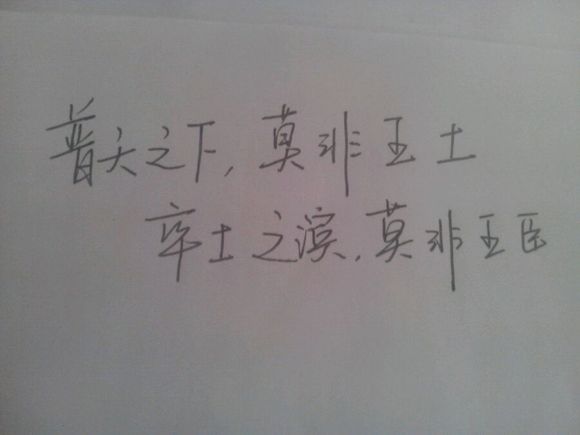 普天之下,莫非王土
率土之滨,莫非王臣